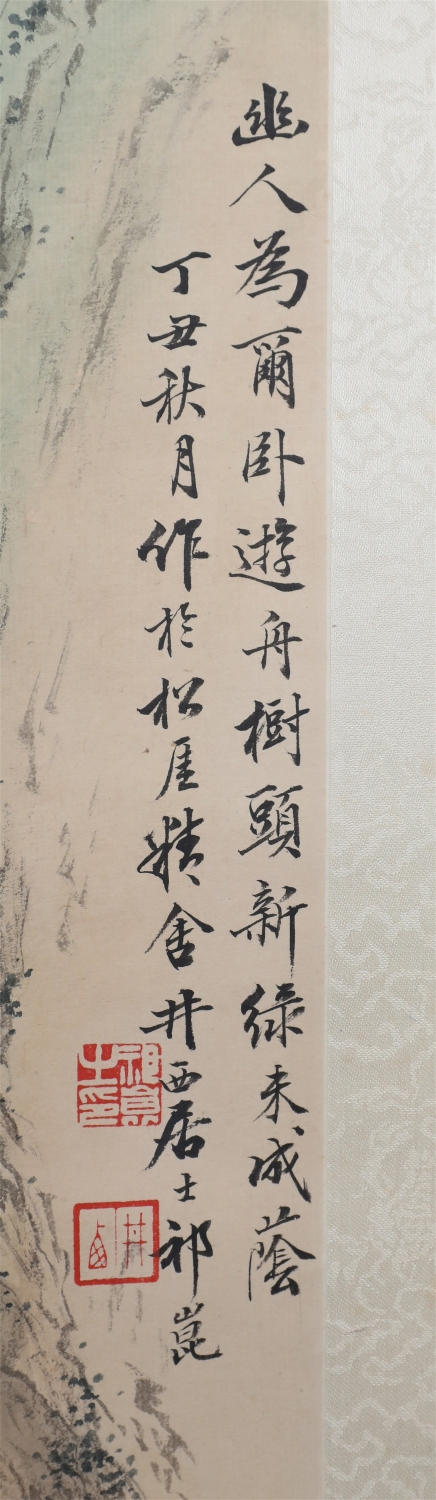 幽人為爾卧遊舟樹頭新綠未成蔭
丁丑秋月作於松厓精舍井西居士祁崑
祁崑之印
井西